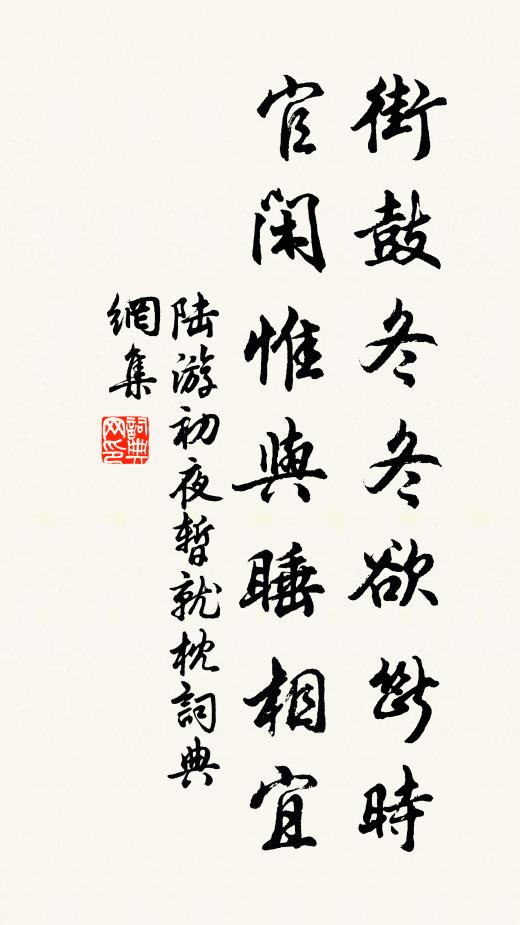 街鼓冬冬欲斷時
官閑惟與睡相宜
陸游初夜暫就枕詞典
網集
詞典
网印